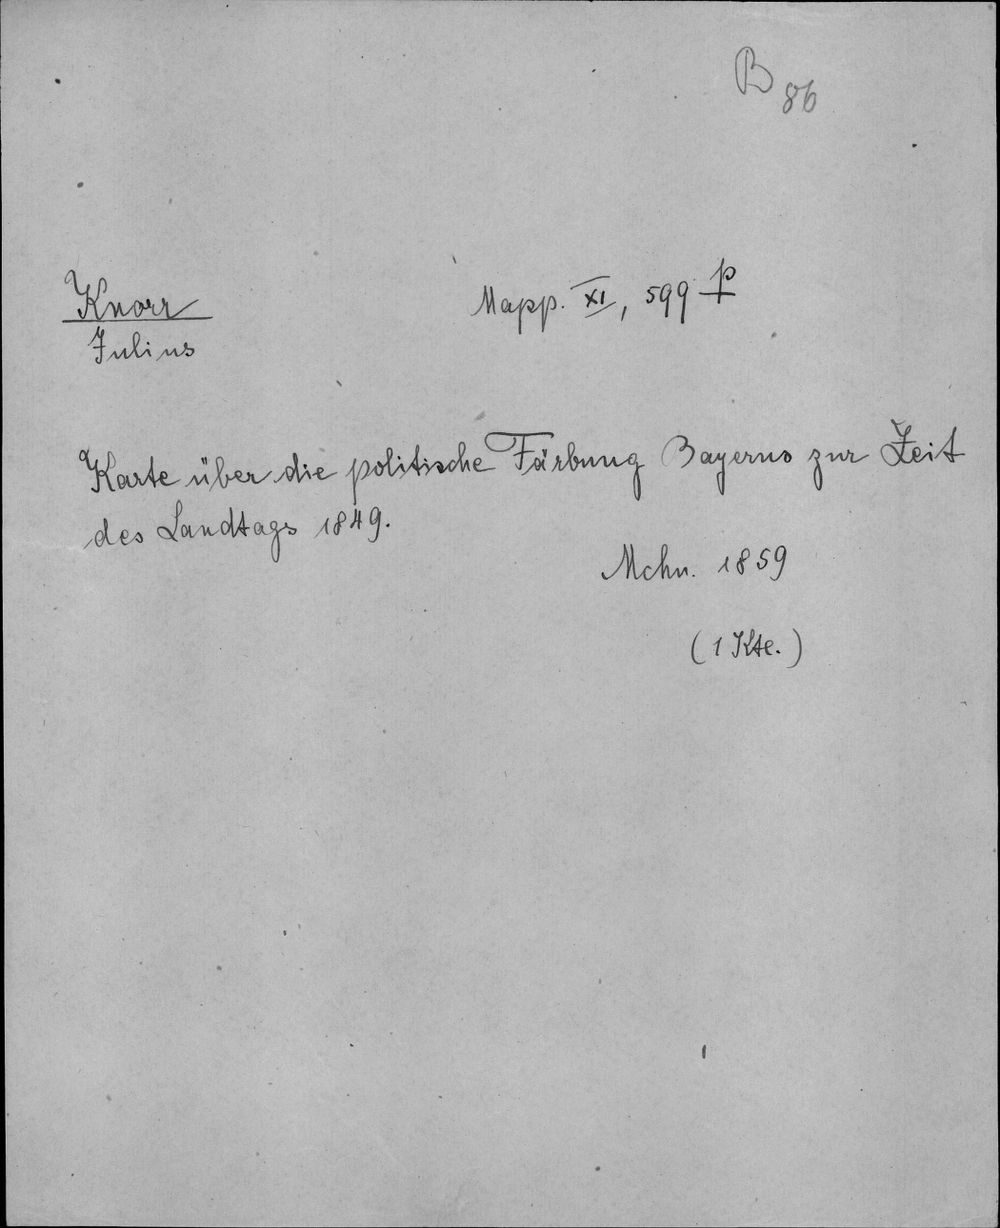 B 86
Knorr
Mapp. XI, 599 p
Julius
Karte über die politische Färbung Bayerns zur Zeit
des Landtags 1849.
Mchn. 1859
(1 Kte.)